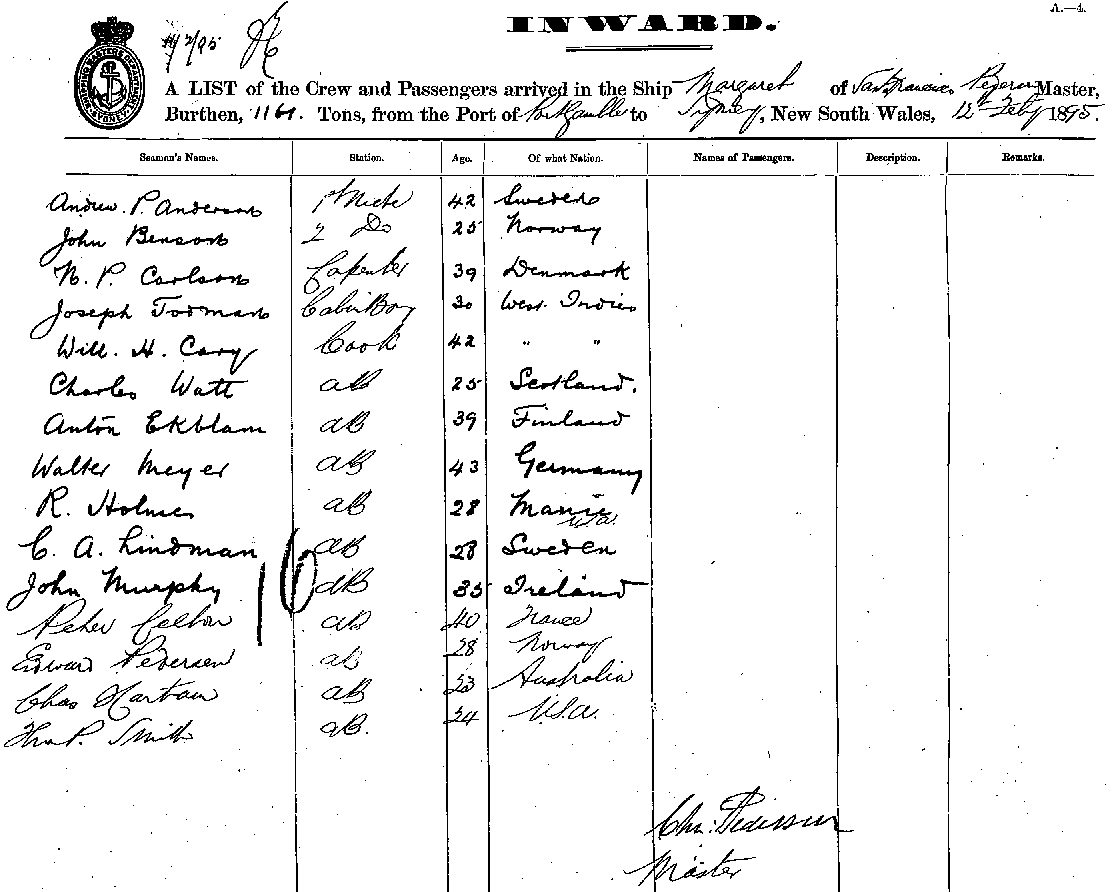 A.—4.
INWARD.
SHIPPING MASTERS DEPARTMENT SYDNEY
A LIST of the Crew and Passengers arrived in the Ship Margaret of San Francisco Master,
Burthen, 1161. Tons, from the Port of to Sydney, New South Wales, 12th Feby 1895.
Seaman's Names. Station. Age. Of what Nation. Names of Passengers. Description. Remarks.
Andrew. P. Anderson 1st Mate 42 Sweden
John Benson 2 Do 25 Norway
N. P. Carlson Capenter 39 Denmark
Joseph Todman Cabin Boy 30 West Indies
Will. H. Cary Cook 42 " "
Charles Watt AB 25 Scotland.
Anton Ekblam AB 39 Finland
Walter Meyer AB 43 Germany
R. Holmes AB 28 Manie
U.S.A.
C. A. Lindman AB 28 Sweden
John Murphy AB 35 Ireland
16
Peter AB 40 France
Edward Pedersen AB 28 Norway
Chas Hartman AB 23 Australia
Smith AB. 24 U.S.A.
Chr. Pedersen
Master